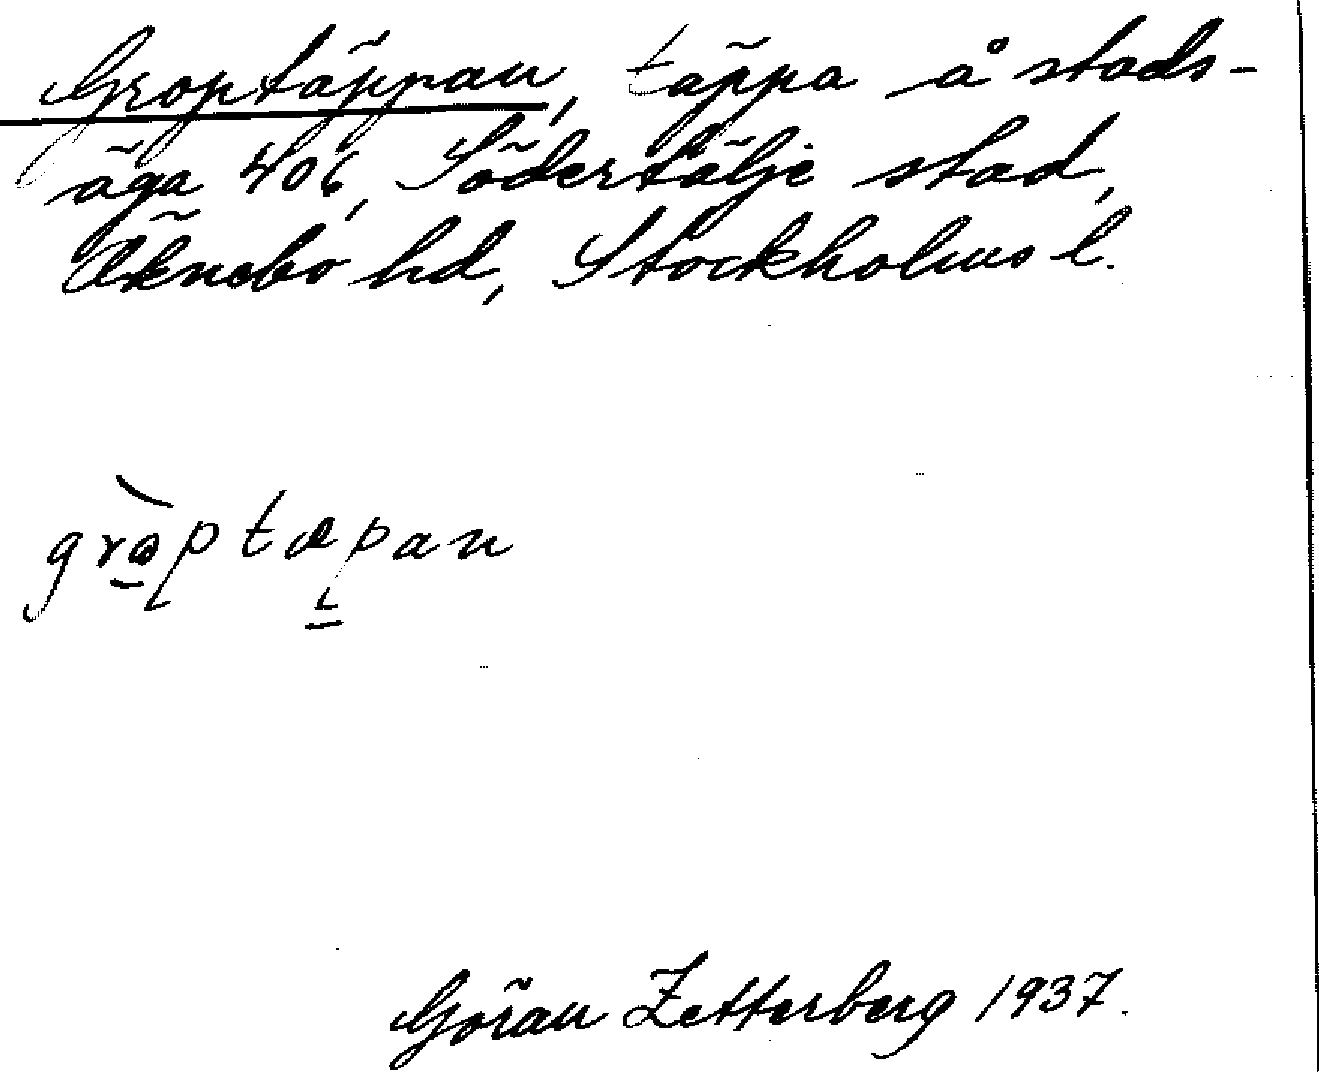 Groptäppan, täppa å stads-
äga 406, Södertälje stad,
Öknebo hd, Stockholms l.
gràptæpan
Göran Zetterberg 1937.